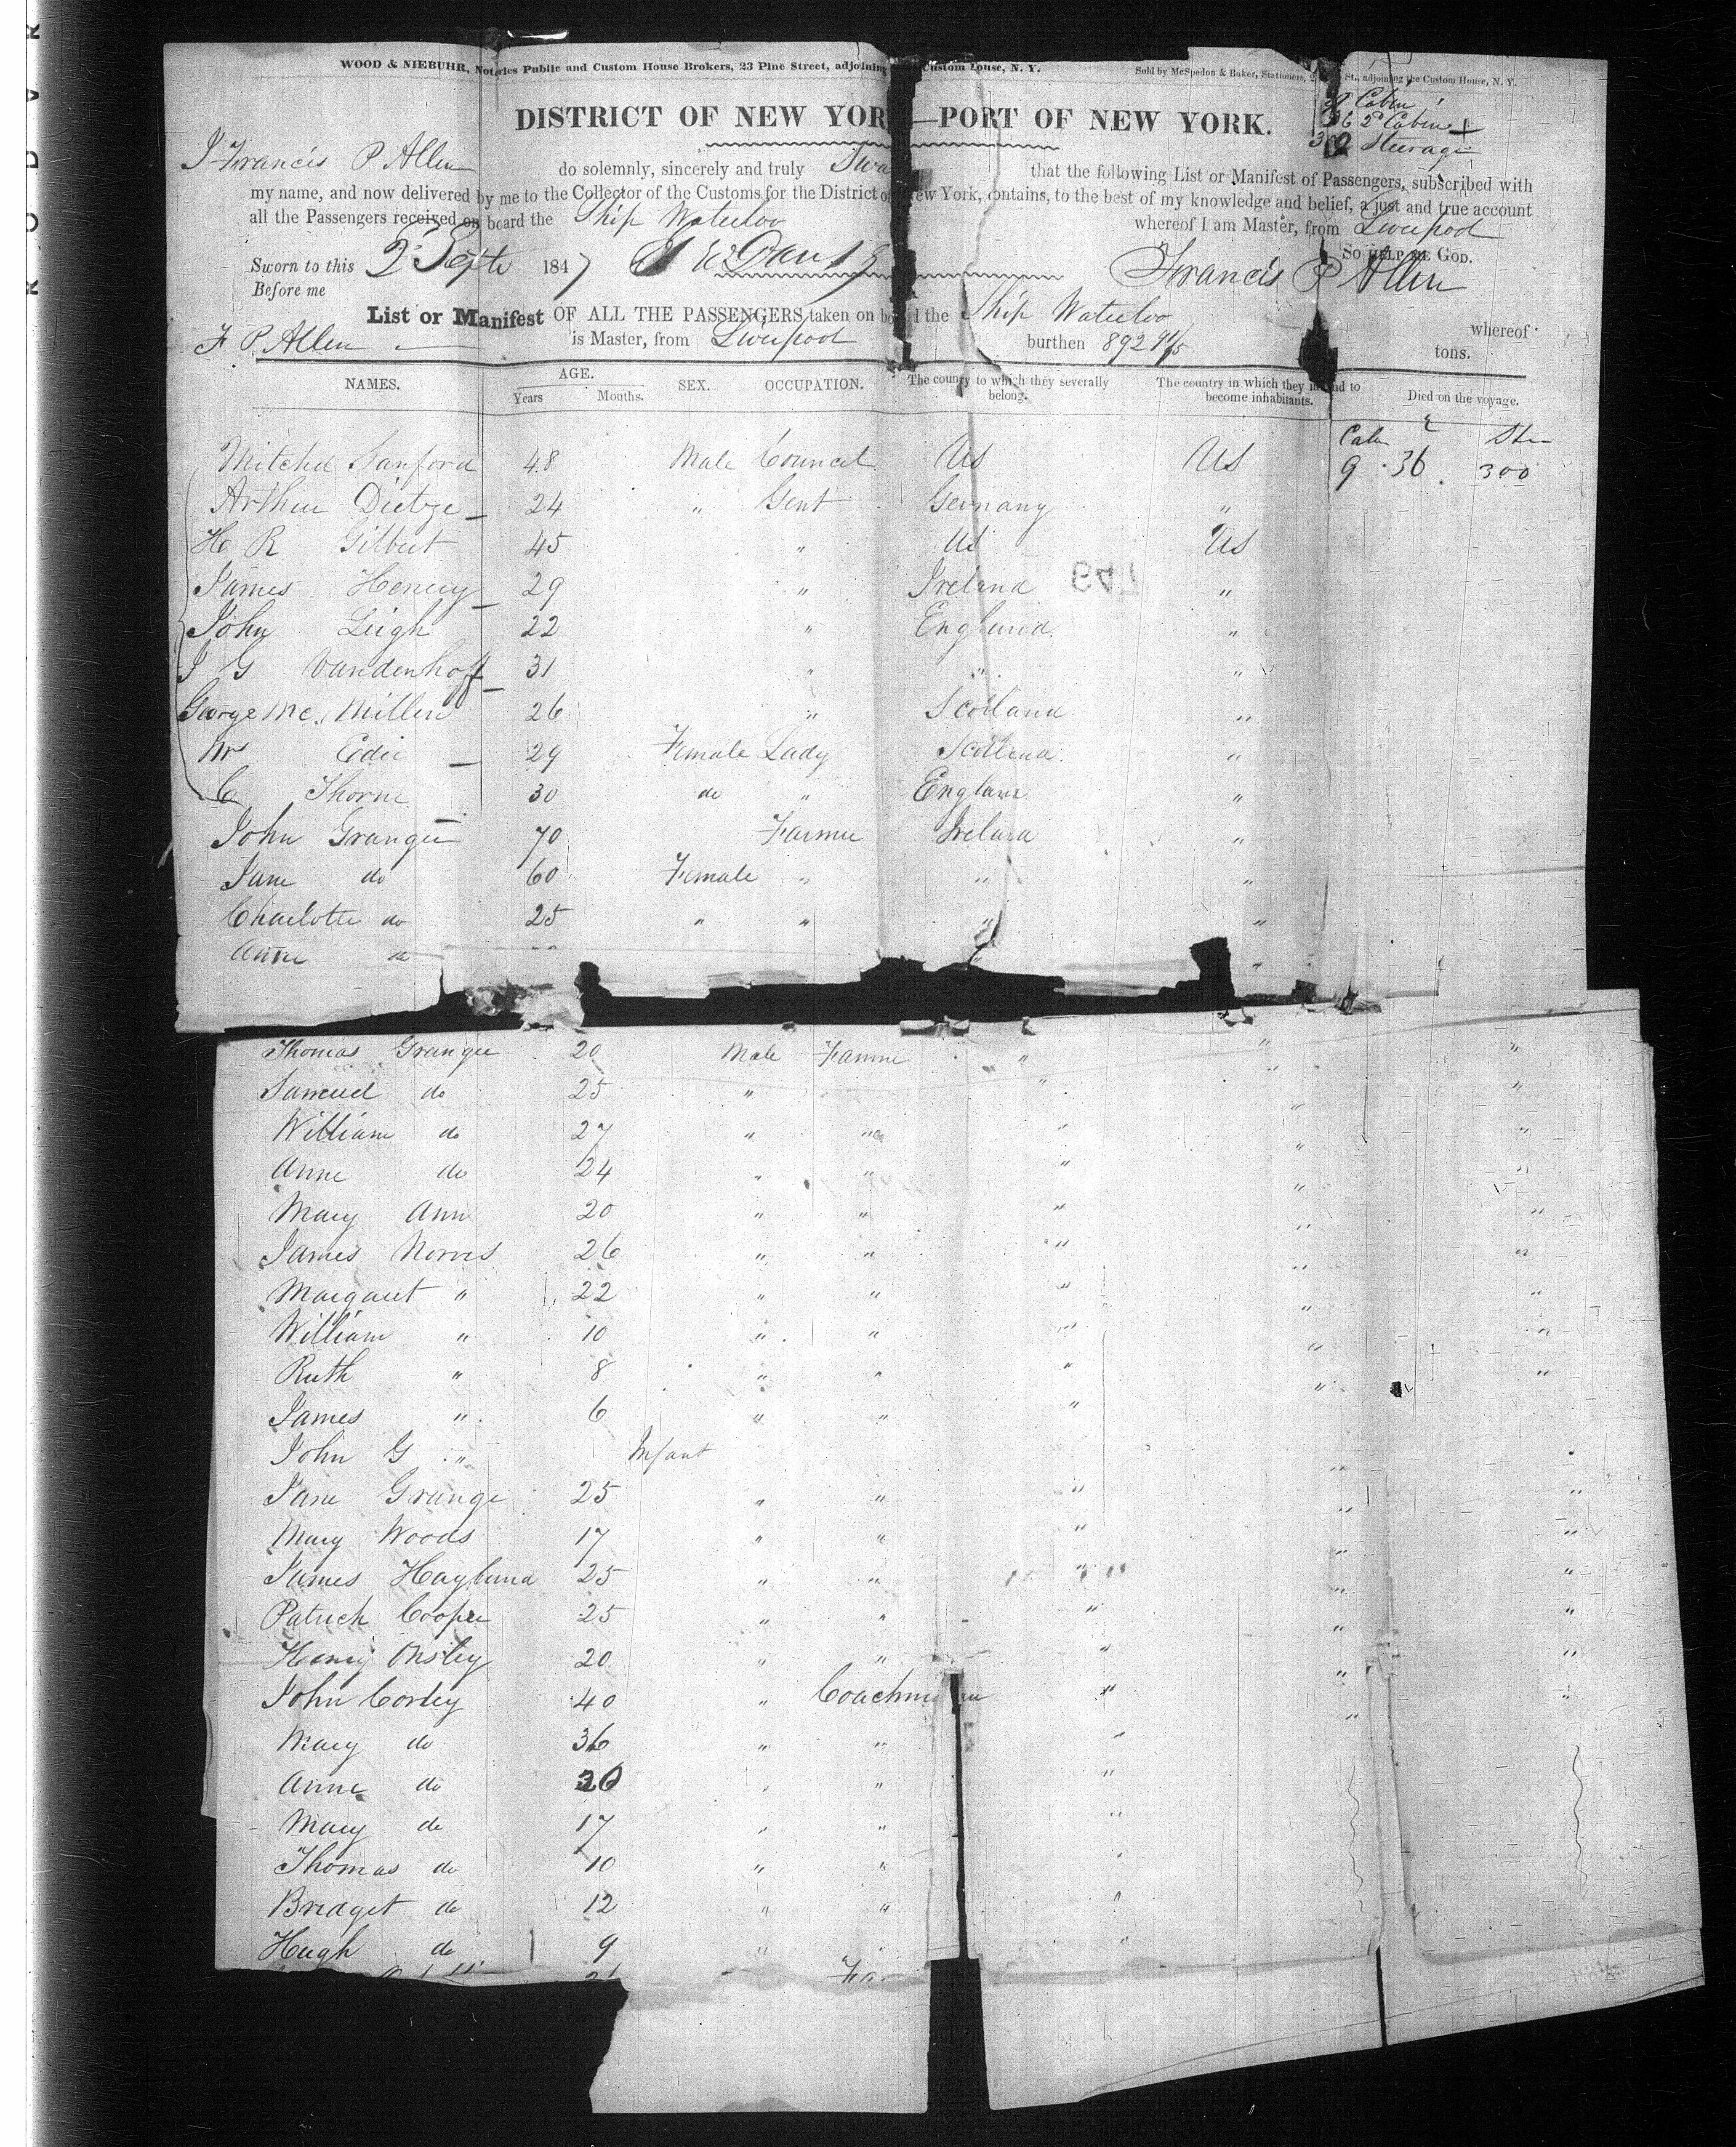 WOOD & NIEBUHR, Notaries Public and Custom House Brokers, 23 Pine Street, adjoining Custom House, N. Y.
Sold by McSpedon & Baker, Stationers, St., adjoining the Custom House, N. Y.
DISTRICT OF NEW YOR—PORT OF NEW YORK.
Cabin
36 2d Cabin
Steerage
I Francis P Allen do solemnly, sincerely and truly Swa that the following List or Manifest of Passengers, subscribed with
my name, and now delivered by me to the Collector of the Customs for the District of New York, contains, to the best of my knowledge and belief, a just and true account
all the Passengers received on board the Ship Waterloo whereof I am Master, from Liverpool
SO HELP ME GOD.
Sworn to this 2d Septr 1847
Before me
Francis P Allen
List or Manifest OF ALL THE PASSENGERS taken on board the Ship Waterloo whereof
F P Allen is Master, from Liverpool burthen 892 tons.
NAMES. AGE. Years Months. SEX. OCCUPATION. The country to which they severally belong. The country in which they intend to become inhabitants. Died on the voyage.
Cabn 2 Ste
9 36 300
Mitchel Sanford 48 Male Council US US
Arthur Dietze 24 " Gent Germany "
H R Gilbert 45 " US US
James Henery 29 " Ireland "
647
John Leigh 22 " England "
J G Vandenhoff 31 " " "
George Mc. Millen 26 " Scotland "
Mrs Edie 29 Female Lady Scotland "
C Thorne 30 do " England "
John Granger 70 Farmer Ireland "
Jane do 60 Female " " "
Charlotte do 25 " " " "
Anne do "
Thomas Granger 20 Male Farmer " " "
Samuel do 25 " " " "
William do 27 " " " " "
Anne do 24 " " " " "
Mary Ann 20 " " " " "
James Norris 26 " " " " "
Margaret " 22 " " " " "
William " 10 " " " " "
Ruth " 8 " " " " "
James " 6 " " "
John G " Infant
Jane Grange 25 " " " " "
Mary Woods 17 " " " " "
James 25 " " " " "
Patrick Cooper 25 " " " " "
Henry 20 " " " " "
John Corley 40 " Coachman " " "
Mary do 36 " " "
Anne do 20 " " "
Mary do 17 " " "
Thomas do 10 " " "
Bridget do 12 " " "
Hugh do 9 " " "